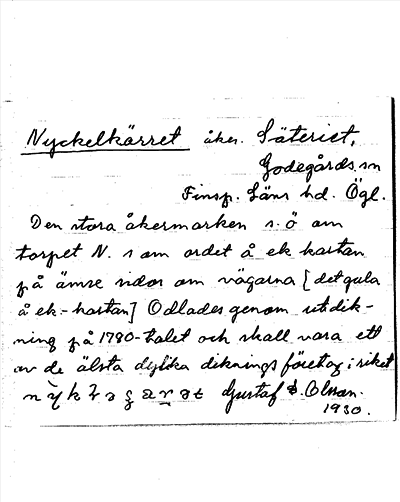 Nyckelkärret åker. Säteriet,
Godegårds sn
Finsp. Läns hd. Ögl.
Den stora åkermarken s. ö om
torpet N. som ordet å ek kartan
på ömse sidor om vägarna [det gula
å ek.-kartan] Odlades genom utdik-
ning på 1790-talet och skall vara ett
av de älsta dylika diknings företag i riket
Gustaf Olsson.
1930.